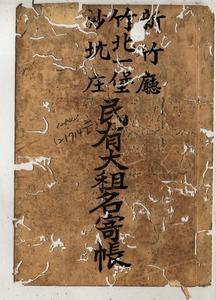 新竹廳
竹北一堡
沙坑庄
民有大租名寄帳